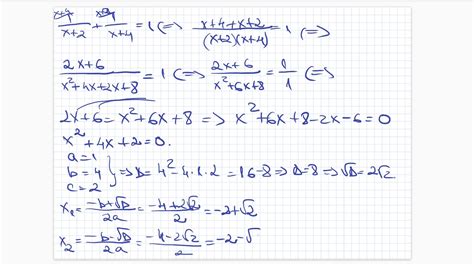 x+4 x+2
1/(x+2) + 1/(x+4) = 1 <=> (x+4+x+2)/((x+2)(x+4)) = 1 <=>
(2x+6)/(x²+4x+2x+8) = 1 <=> (2x+6)/(x²+6x+8) = 1/1 <=>
2x+6 = x²+6x+8 => x²+6x+8-2x-6=0
x²+4x+2=0.
a=1
b=4 } => D=4²-4·1·2=16-8 => D=8 => √D=2√2
c=2
x₁ = (-b+√D)/2a = (-4+2√2)/2 = -2+√2
x₂ = (-b-√D)/2a = (-4-2√2)/2 = -2-√